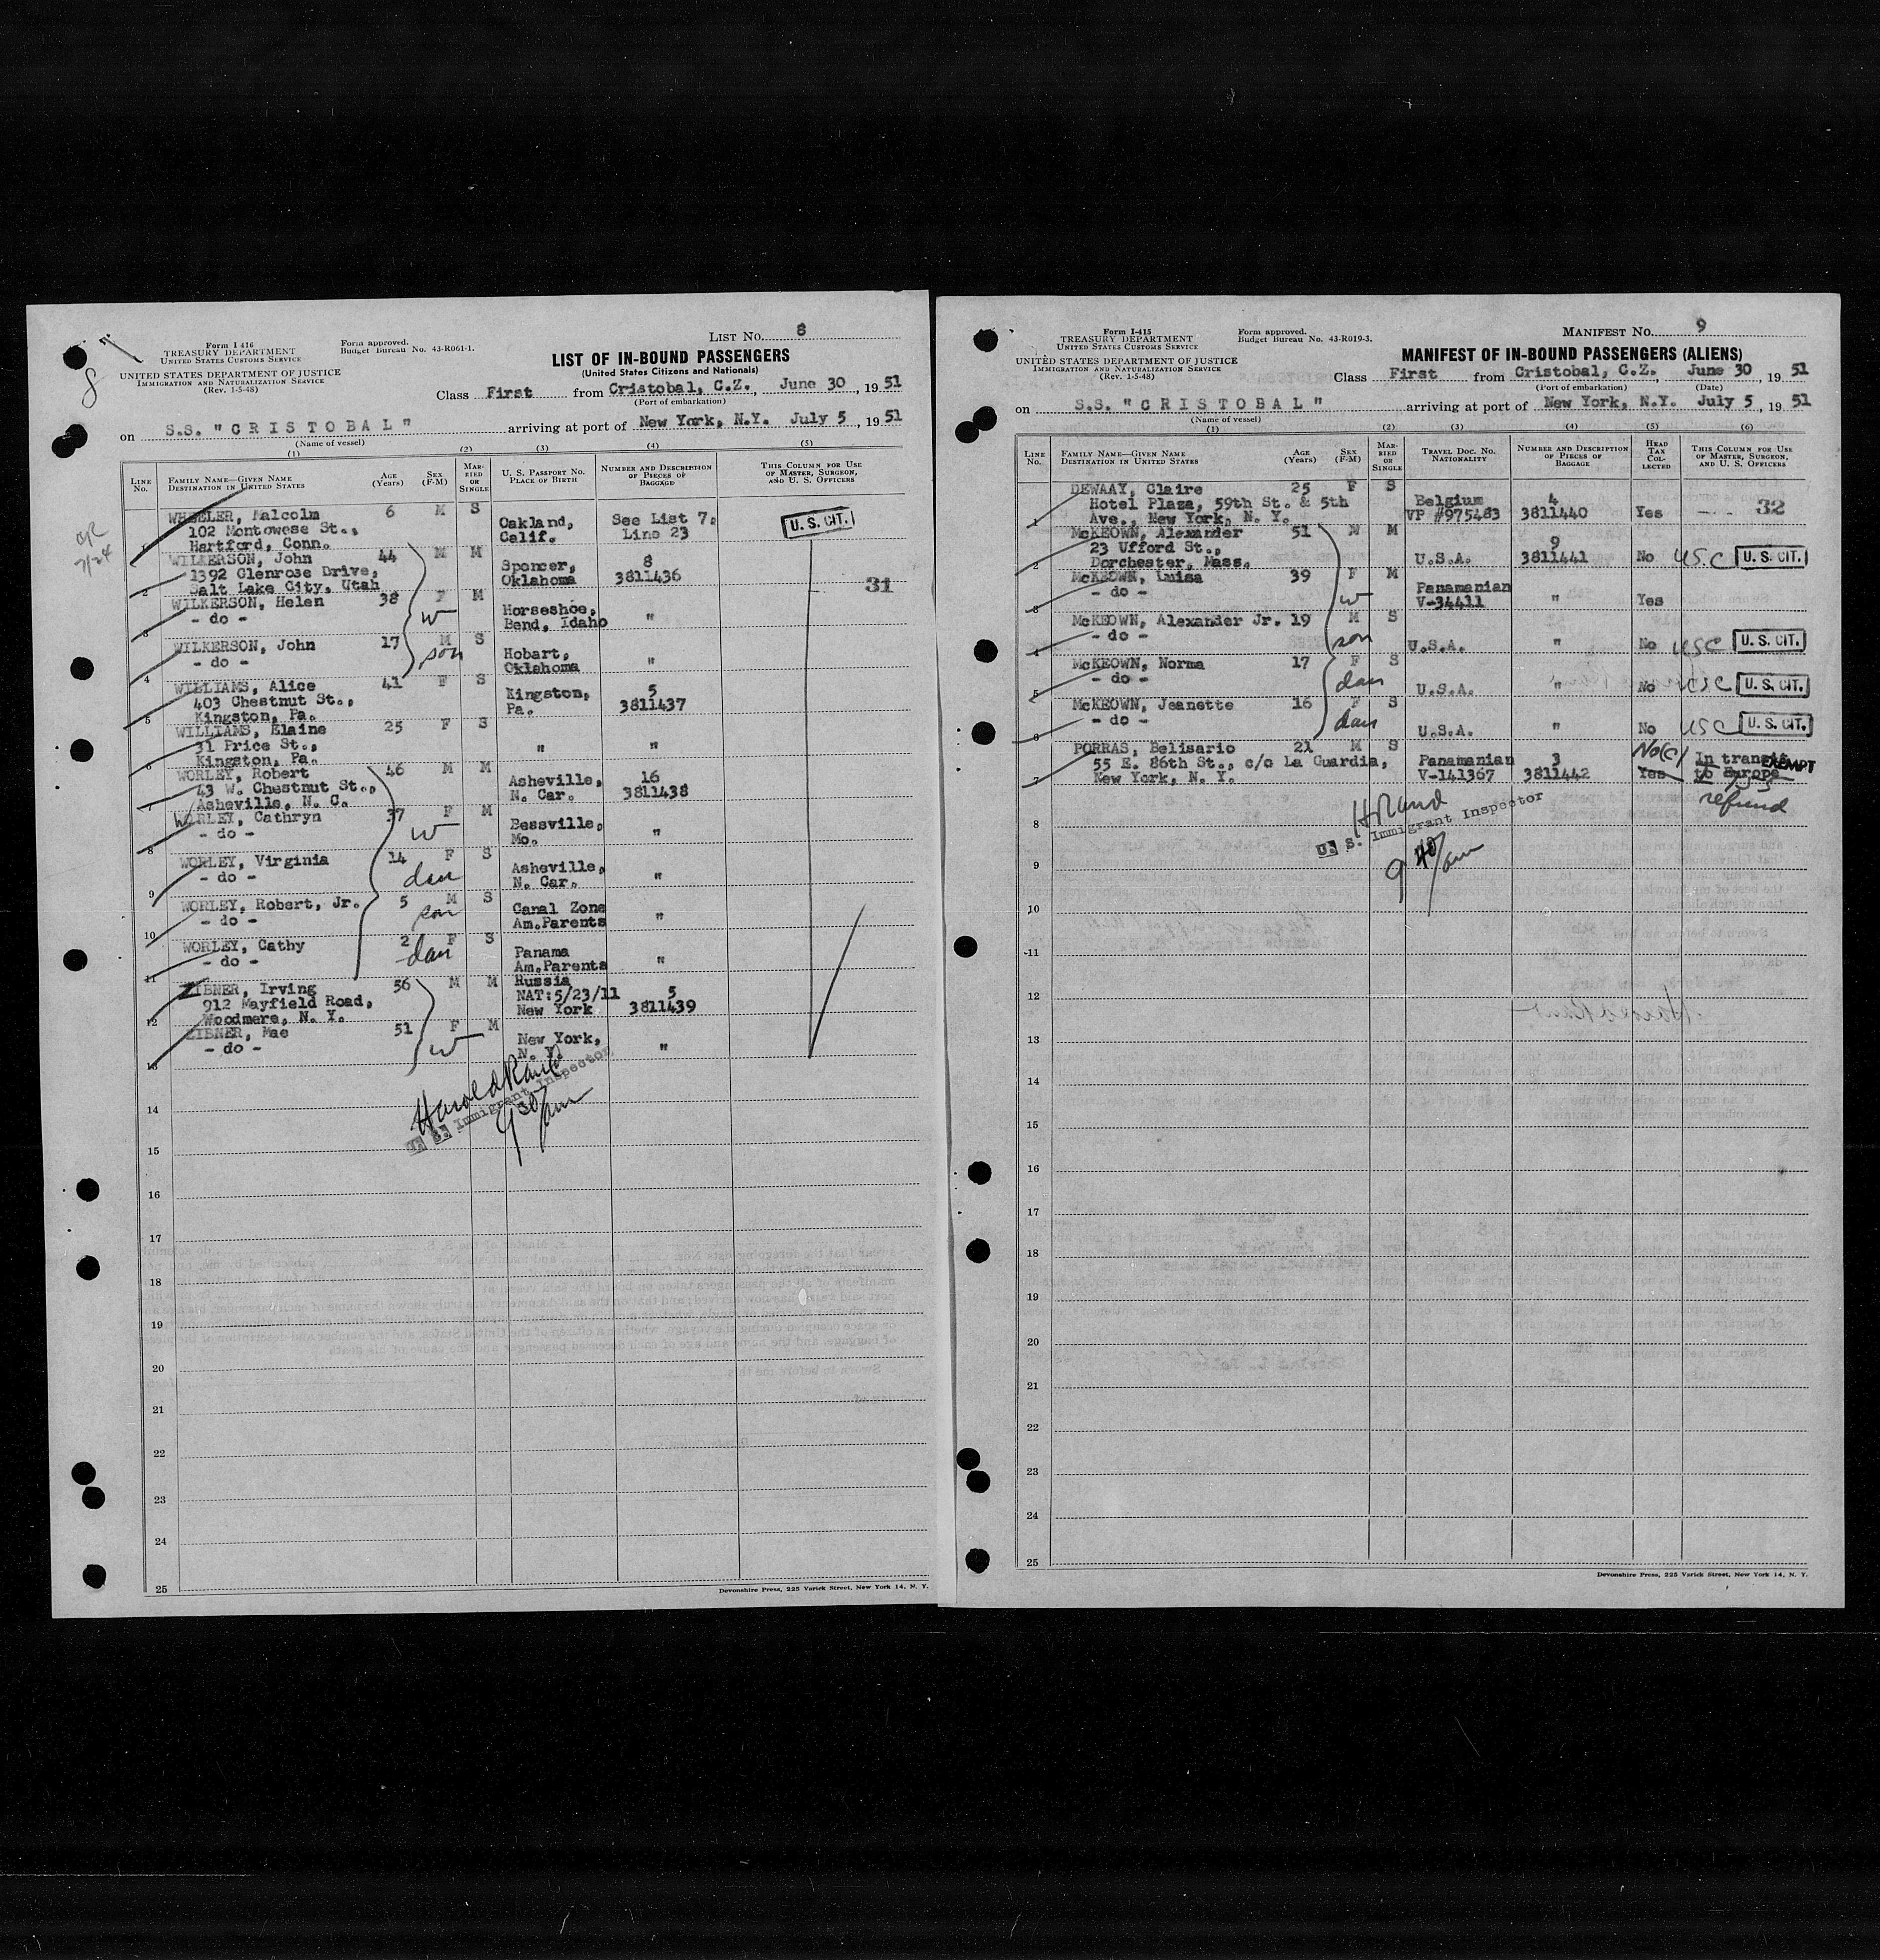 8
Form I 416
TREASURY DEPARTMENT
UNITED STATES CUSTOMS SERVICE
UNITED STATES DEPARTMENT OF JUSTICE
IMMIGRATION AND NATURALIZATION SERVICE
(Rev. 1-5-48)
Form approved.
Budget Bureau No. 43-R061-1.
LIST No. 8
LIST OF IN-BOUND PASSENGERS
(United States Citizens and Nationals)
Class First from Cristobal, C.Z., June 30, 1951
(Port of embarkation)
on S.S. "CRISTOBAL" arriving at port of New York, N.Y. July 5, 1951
(Name of vessel)
(1) (2) (3) (4) (5)
LINE No. FAMILY NAME—GIVEN NAME DESTINATION IN UNITED STATES AGE (Years) SEX (F-M) MARRIED OR SINGLE U. S. PASSPORT NO. PLACE OF BIRTH NUMBER AND DESCRIPTION OF PIECES OF BAGGAGE THIS COLUMN FOR USE OF MASTER, SURGEON, AND U. S. OFFICERS
7/24
WHEELER, Malcolm 6 M S
102 Montowese St., Oakland, See List 7, U. S. CIT.
Hartford, Conn. Calif. Line 23
WILKERSON, John 44 M M
1392 Glenrose Drive, Spencer, 8
2 Salt Lake City, Utah Oklahoma 3811436 31
WILKERSON, Helen 38 F M
- do - w Horseshoe,
3 Bend, Idaho "
WILKERSON, John 17 M S
- do - son Hobart,
4 Oklahoma "
WILLIAMS, Alice 41 F S
403 Chestnut St., Kingston, 5
5 Kingston, Pa. Pa. 3811437
WILLIAMS, Elaine 25 F S
31 Price St.,
6 Kingston, Pa. " "
WORLEY, Robert 46 M M
43 W. Chestnut St., Asheville, 16
7 Asheville, N. C. N. Car. 3811438
WORLEY, Cathryn 37 F M
- do - w Bessville,
8 Mo. "
WORLEY, Virginia 14 F S
- do - dau Asheville,
9 N. Car. "
WORLEY, Robert, Jr. 5 M S
- do - son Canal Zone
10 Am.Parents "
WORLEY, Cathy 2 F S
- do - dau Panama
11 Am.Parents "
ZIBNER, Irving 56 M M Russia
912 Mayfield Road, NAT:5/23/11 5
12 Woodmere, N. Y. New York 3811439
ZIBNER, Mae 51 F M
- do - w New York,
13 N. Y. "
Harold Rand
U. S. Immigrant Inspector
9 30/am
14
15
16
17
18
19
20
21
22
23
24
25
Devonshire Press, 225 Varick Street, New York 14, N. Y.
Form I-415
TREASURY DEPARTMENT
UNITED STATES CUSTOMS SERVICE
UNITED STATES DEPARTMENT OF JUSTICE
IMMIGRATION AND NATURALIZATION SERVICE
(Rev. 1-5-48)
Form approved.
Budget Bureau No. 43-R019-3.
MANIFEST No. 9
MANIFEST OF IN-BOUND PASSENGERS (ALIENS)
Class First from Cristobal, C.Z., June 30, 1951
(Port of embarkation) (Date)
on S.S. "CRISTOBAL" arriving at port of New York, N.Y. July 5, 1951
(Name of vessel)
(1) (2) (3) (4) (5) (6)
LINE No. FAMILY NAME—GIVEN NAME DESTINATION IN UNITED STATES AGE (Years) SEX (F-M) MARRIED OR SINGLE TRAVEL DOC. NO. NATIONALITY NUMBER AND DESCRIPTION OF PIECES OF BAGGAGE HEAD TAX COLLECTED THIS COLUMN FOR USE OF MASTER, SURGEON, AND U. S. OFFICERS
DEWAAY, Claire 25 F S
Hotel Plaza, 59th St. & 5th Belgium 4
1 Ave., New York, N. Y. VP #975483 3811440 Yes 32
McKEOWN, Alexander 51 M M
23 Ufford St., 9
2 Dorchester, Mass. U.S.A. 3811441 No USC U. S. CIT.
McKEOWN, Luisa 39 F M
- do - w Panamanian
3 V-34411 " Yes
McKEOWN, Alexander Jr. 19 M S
- do - son
4 U.S.A. " No USC U. S. CIT.
McKEOWN, Norma 17 F S
- do - dau
5 U.S.A. " No USC U. S. CIT.
McKEOWN, Jeanette 16 F S
- do - dau
6 U.S.A. " No USC U. S. CIT.
PORRAS, Belisario 21 M S No(c)
55 E. 86th St., c/o La Guardia, Panamanian 3 In transit EXEMPT
7 New York, N. Y. V-141367 3811442 Yes to Europe
refund
H Rand
U. S. Immigrant Inspector
9 40/am
8
9
10
11
12
13
14
15
16
17
18
19
20
21
22
23
24
25
Devonshire Press, 225 Varick Street, New York 14, N. Y.